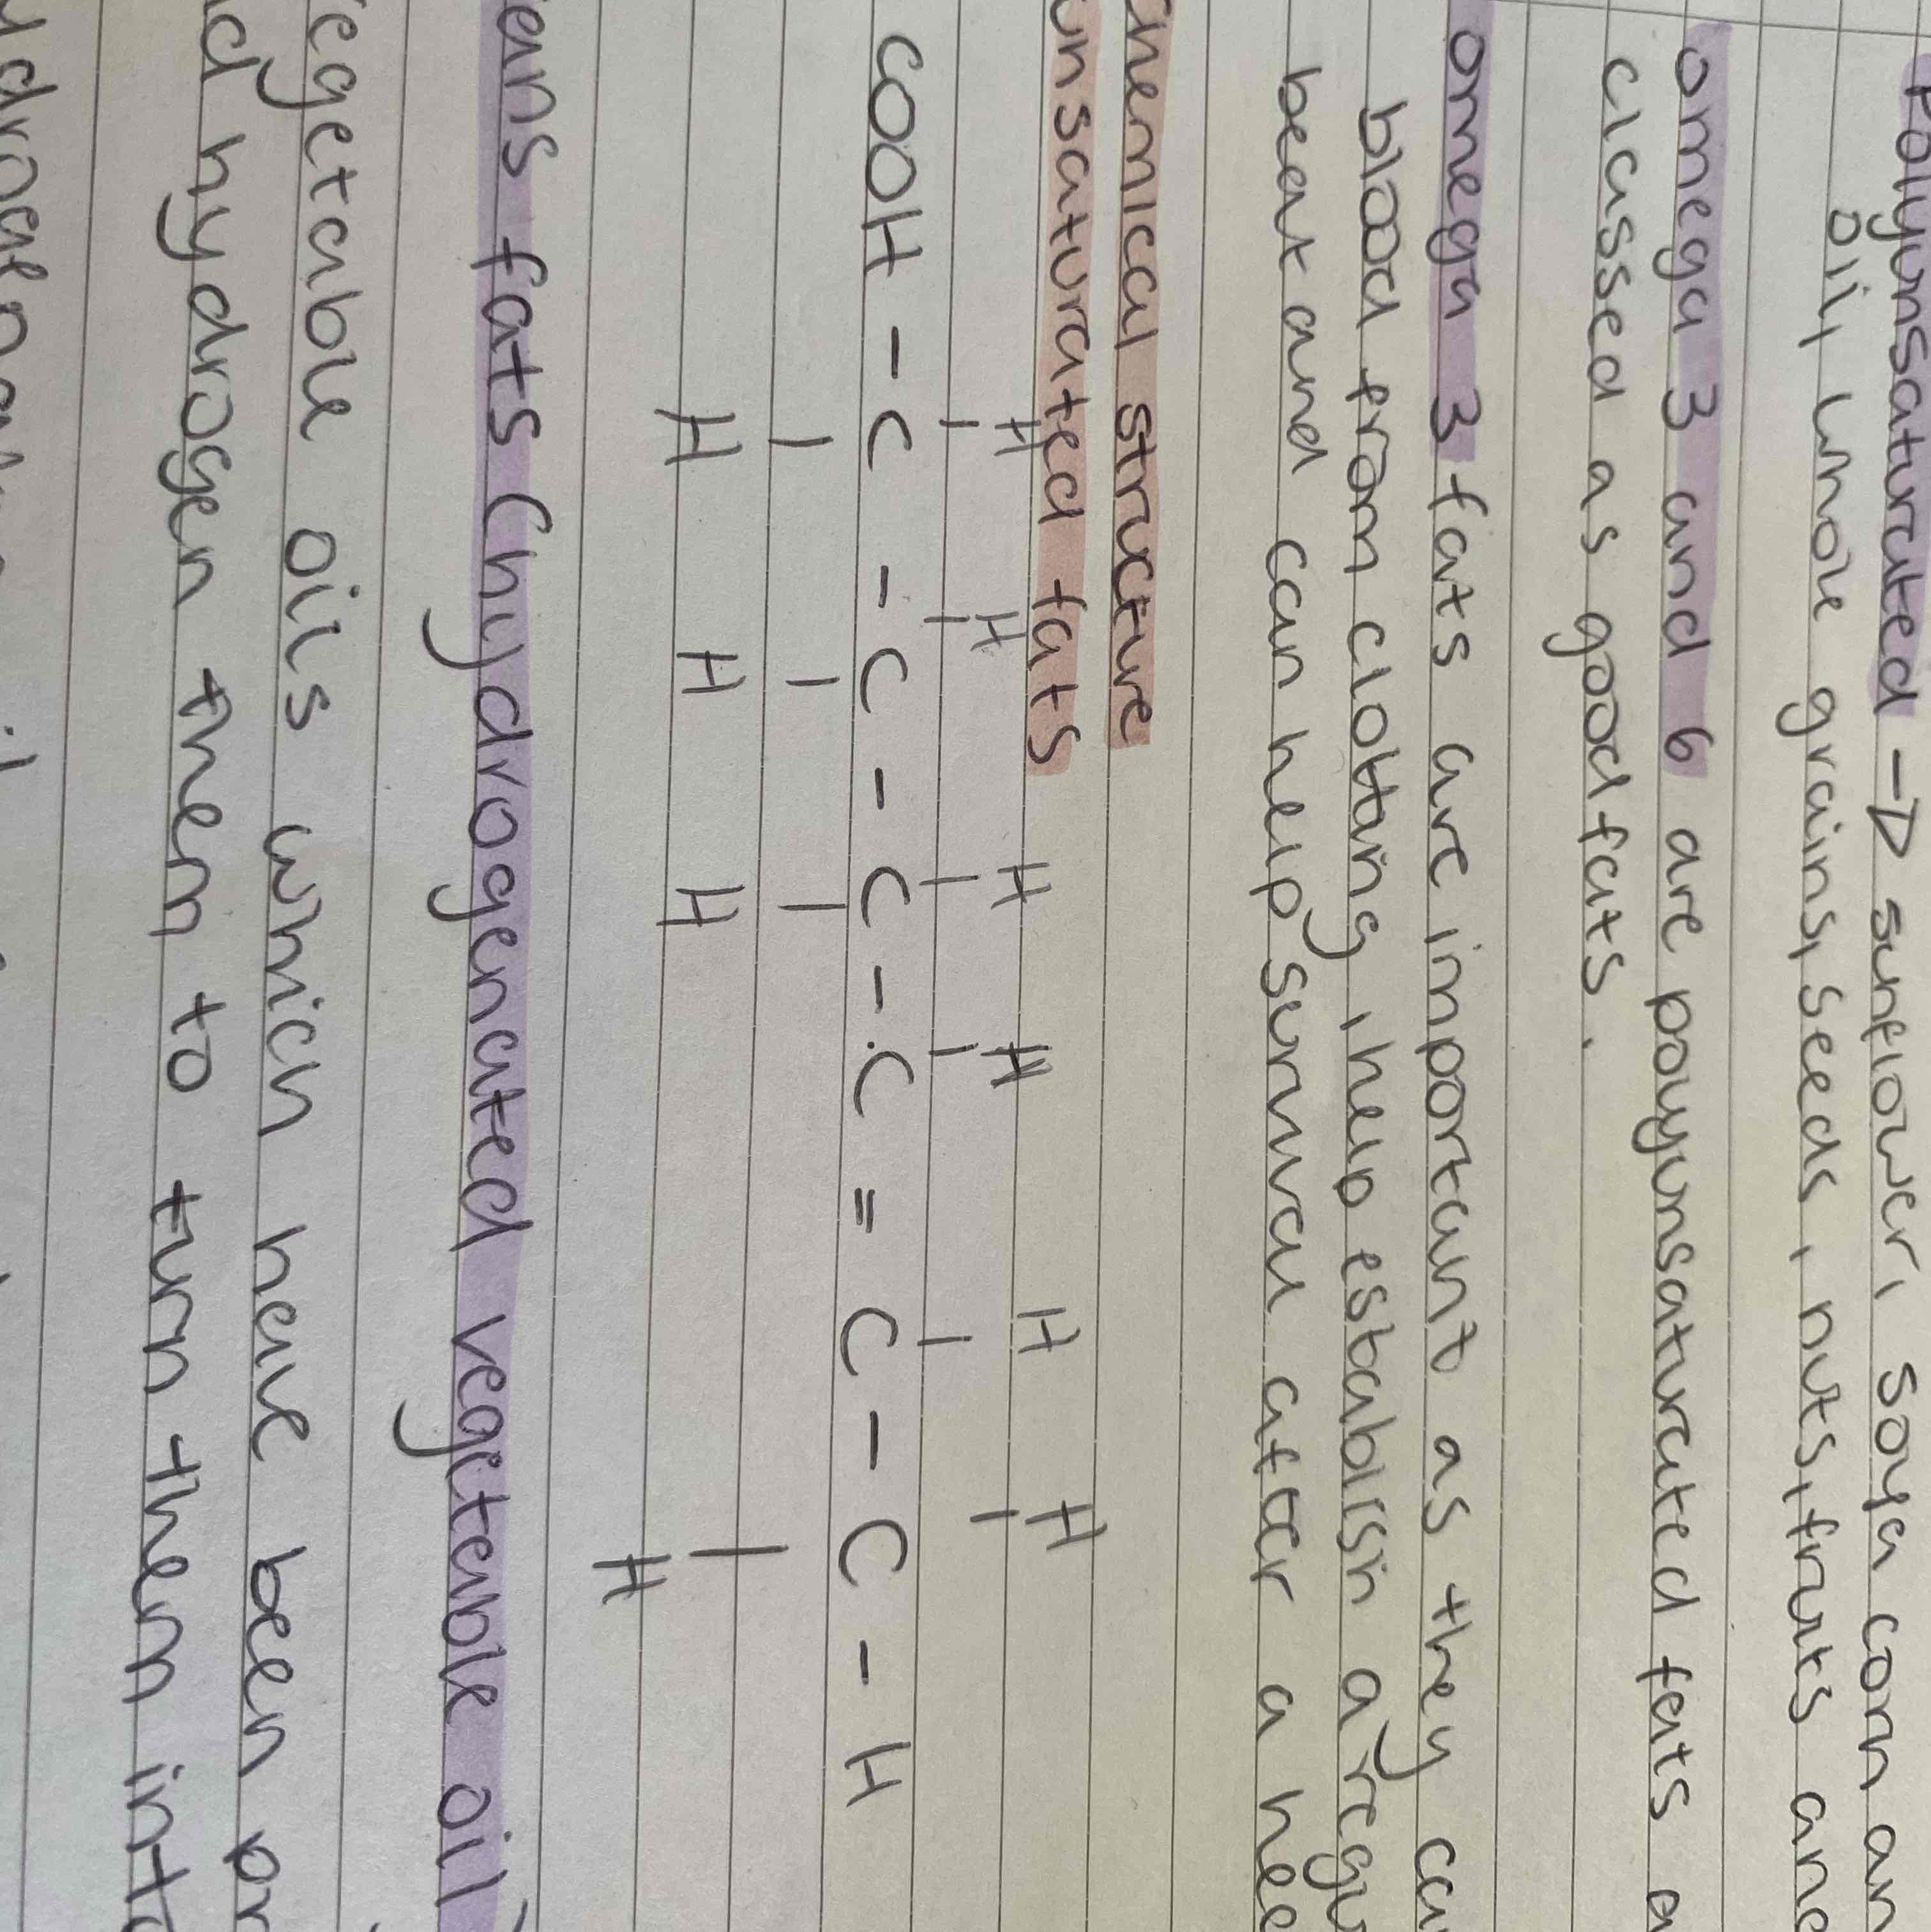 Polyunsaturated → sunflower, soya corn an
oil, whole grains, seeds, nuts, fruits and
omega 3 and 6 are polyunsaturated fats a
classed as good fats.
omega 3 fats are important as they can
blood from clotting, help establish a regu
beat and can help survival after a hea
Chemical structure
unsaturated fats
H H H H H H
COOH - C - C - C - C = C - C - H
H H H H
ans fats (hydrogenated vegetable oil)
egetable oils which have been pr
d hydrogen them to turn them into